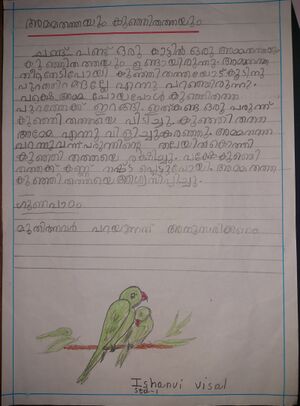 അമ്മതത്തയും കുഞ്ഞിതത്തയും
പണ്ട് പണ്ട് ഒരു കാട്ടിൽ ഒരു അമ്മതത്തയും
കുഞ്ഞിതത്തയും ഉണ്ടായിരുന്നു. അമ്മതത്ത
തീറ്റതേടിപോയി കുഞ്ഞിതത്തയോട് കൂടിനു
പുറത്തിറങ്ങല്ലേ എന്നു പറഞ്ഞിരുന്നു.
പക്ഷെ അമ്മ പോയപ്പോൾ കുഞ്ഞിതത്ത
പുറത്തേക്ക് ഇറങ്ങി. ഇതുകണ്ട ഒരു പരുന്ത്
കുഞ്ഞി തത്തയെ പിടിച്ചു. കുഞ്ഞിതത്ത
അമ്മേ എന്നു വിളിച്ചുകരഞ്ഞു. അമ്മതത്ത
പറന്നുവന്ന് പരുന്തിന്റെ തലയിൽകൊത്തി
കുഞ്ഞി തത്തയെ രക്ഷിച്ചു. പക്ഷേ കുഞ്ഞി
തത്തക്ക് കണ്ണ് നഷ്ട പെട്ടുപോയി. അമ്മതത്ത
കുഞ്ഞിതത്തയെ ആശ്വസിപ്പിച്ചു.
ഗുണപാഠം
മുതിർന്നവർ പറയുന്നത് അനുസരിക്കണം
Ishanvi visal
std-1